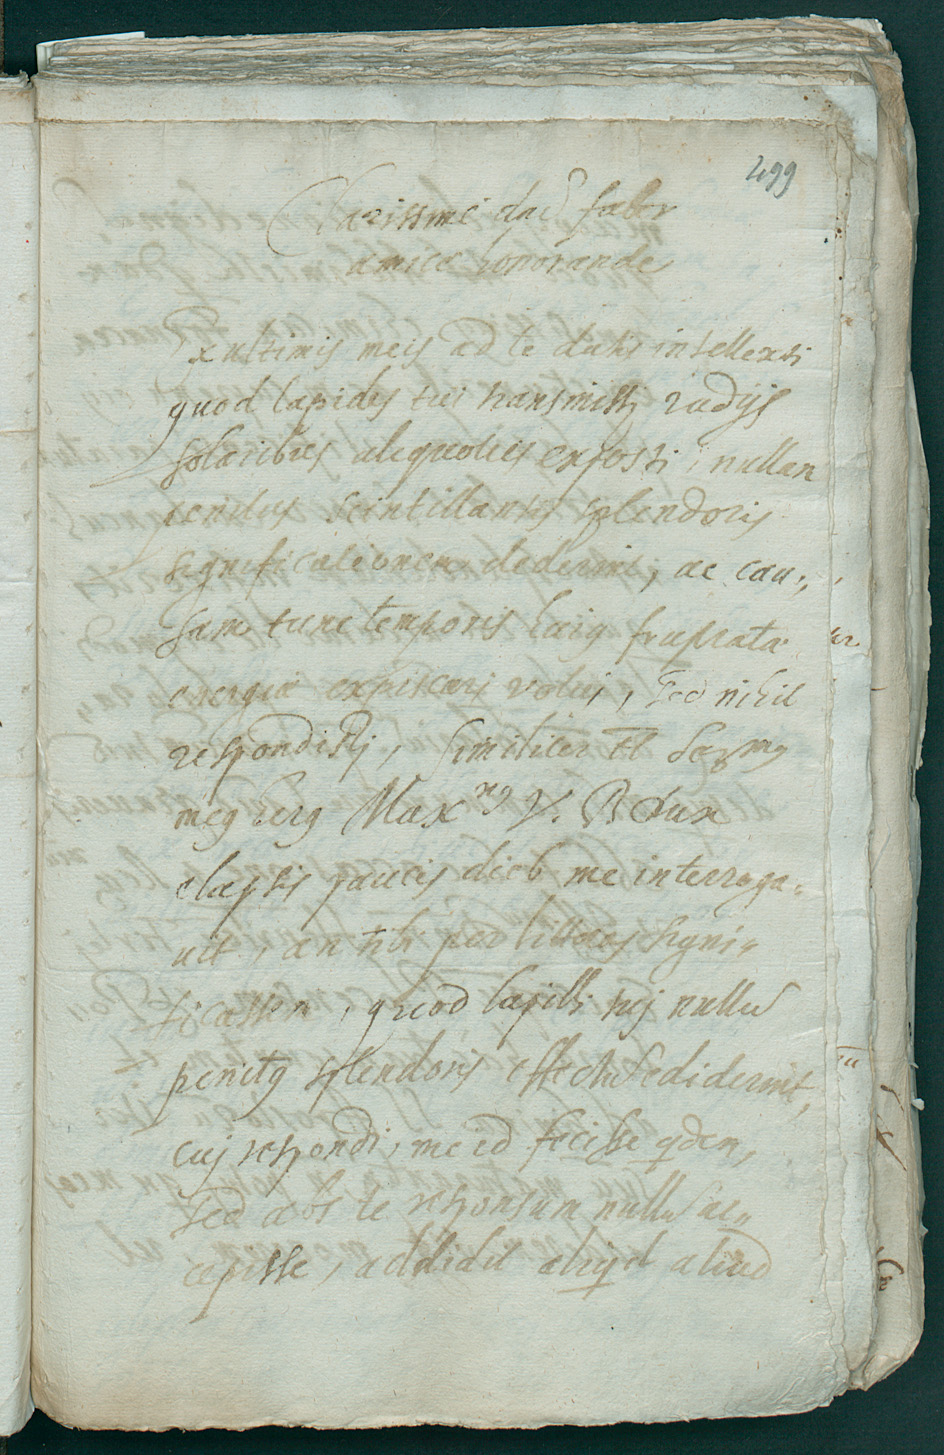 499
Clarissime dne faber
amice honorande
Ex ultimis meis ad te datis intellexti
quod lapides tui transmissi radijs
solaribus aliquoties expositi, nullam
penitus scintillantis splendoris
significationem dederint, ac cau„
sam tunc temporis huius frustratæ
energiæ expiscari volui, sed nihil
respondisti, similiter et Ser.mus
meus herus Max.mus
elapsis paucis dieb me interroga„
uit, an tibi per litteras signi„
ficassem, quod lapilli hij nullu
penitus splendoris effectu ediderint,
cui respondi, me id fecisse qdem,
sed abs te responsum nullu ac„
cepisse, addidit aliqd aliud